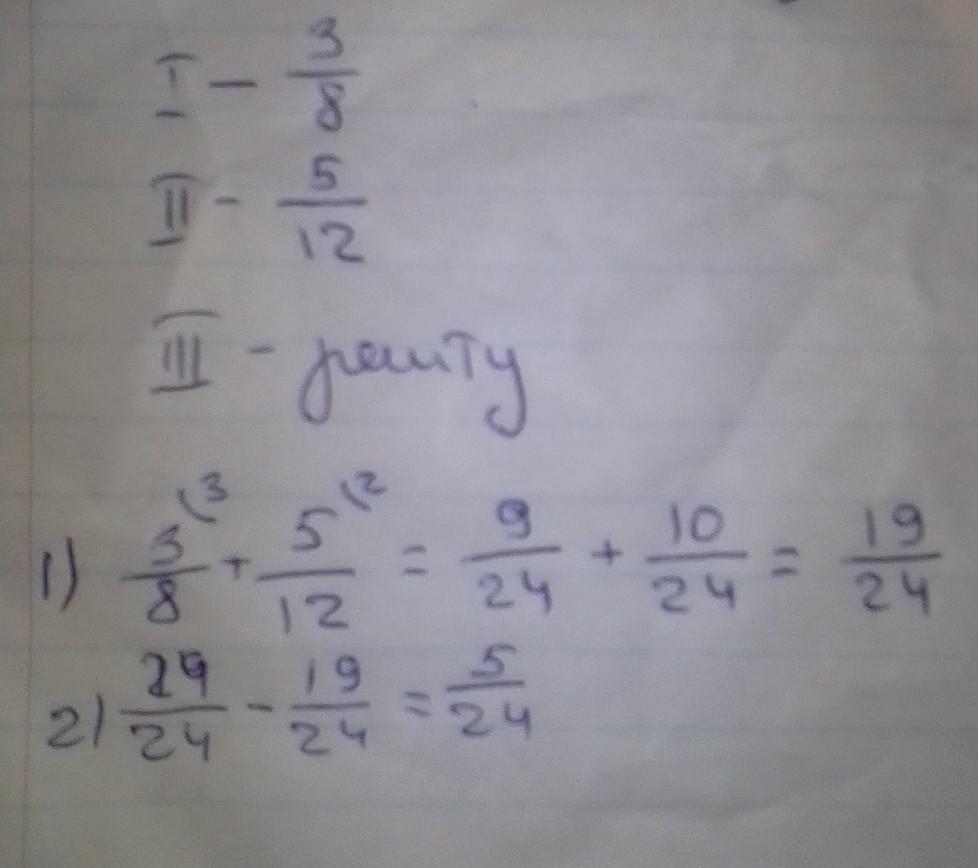 I - 3/8
II - 5/12
III - решту
1) 3/8 (3 + 5/12 (2 = 9/24 + 10/24 = 19/24
2) 24/24 - 19/24 = 5/24